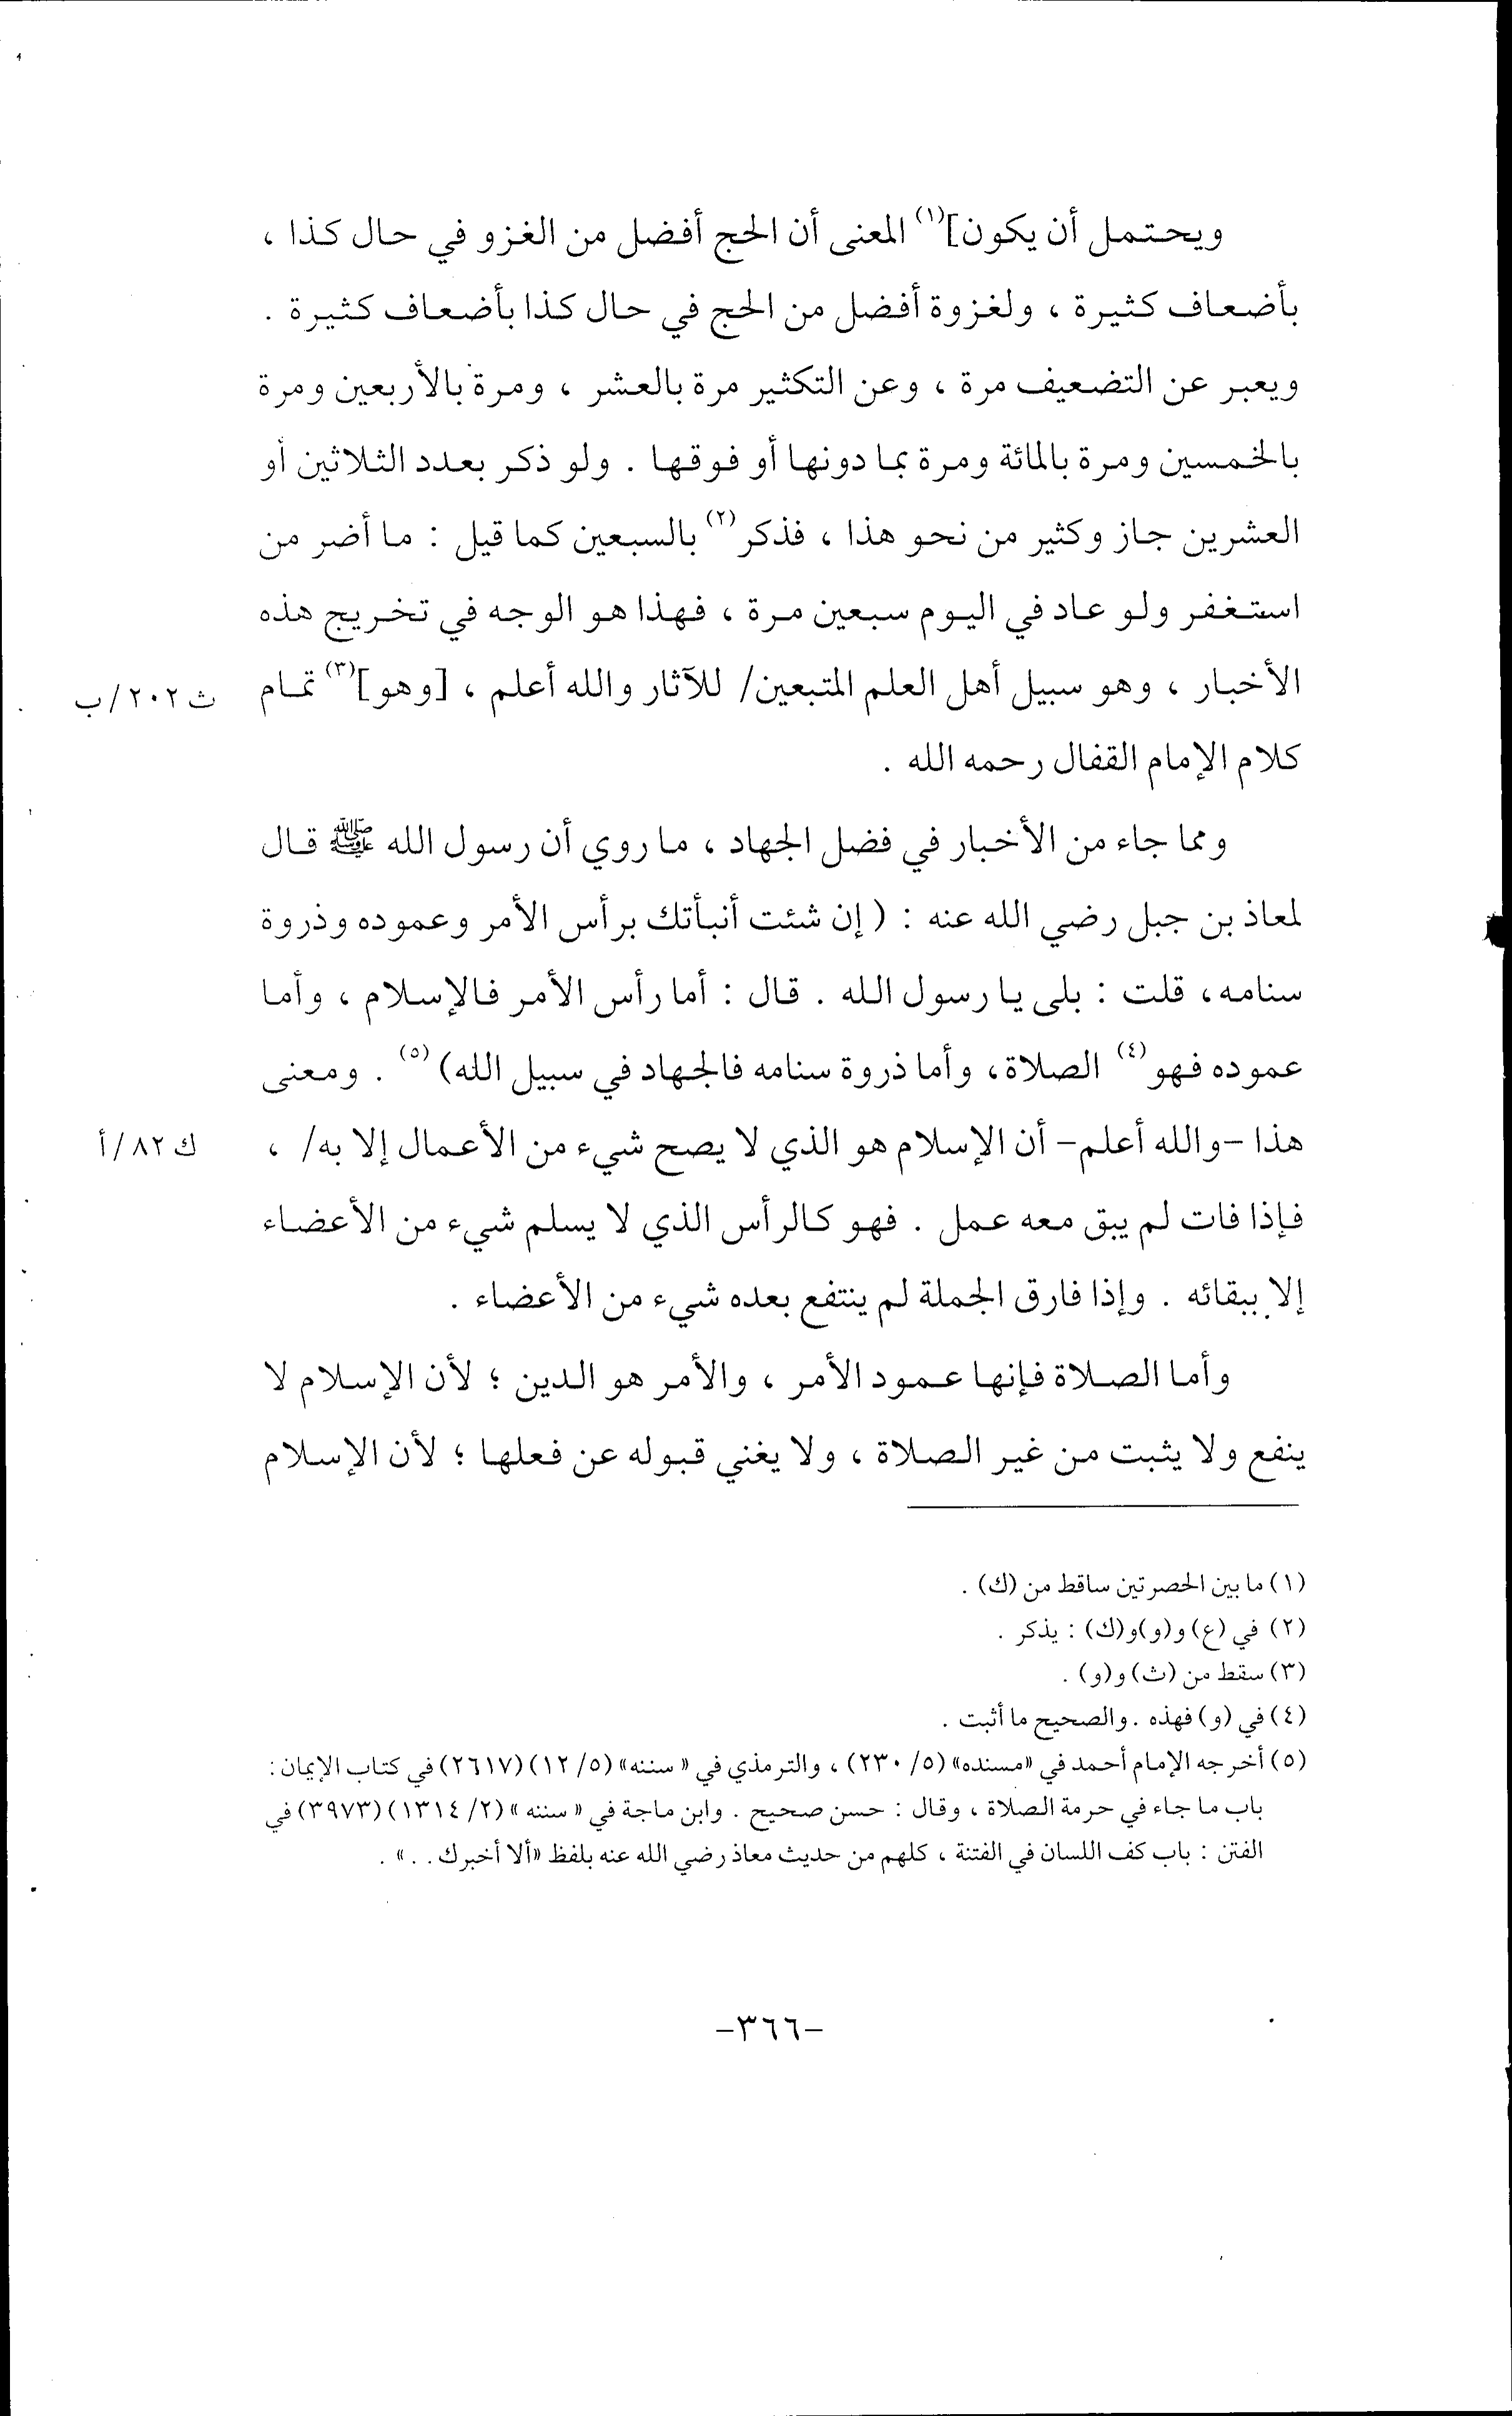 ويحتمل أن يكون](١) المعنى أن الحج أفضل من الغزو في حال كذا ،
بأضعاف كثيرة ، ولغزوة أفضل من الحج في حال كذا بأضعاف كثيرة .
ويعبر عن التضعيف مرة ، وعن التكثير مرة بالعشر ، ومرة بالأربعين ومرة
بالخمسين ومرة بالمائة ومرة بما دونها أو فوقها . ولو ذكر بعدد الثلاثين أو
العشرين جاز وكثير من نحو هذا ، فذكر(٢) بالسبعين كما قيل : ما أضر من
استغفر ولو عاد في اليوم سبعين مرة ، فهذا هو الوجه في تخريج هذه
الأخبار ، وهو سبيل أهل العلم المتبعين/ للآثار والله أعلم ، [وهو](٣) تمام
ث٢٠٢/ب
كلام الإمام القفال رحمه الله .
ومما جاء من الأخبار في فضل الجهاد ، ما روي أن رسول الله ﷺ قال
لمعاذ بن جبل رضي الله عنه : (إن شئت أنبأتك برأس الأمر وعموده وذروة
سنامه، قلت : بلى يا رسول الله . قال : أما رأس الأمر فالإسلام ، وأما
عموده فهو(٤) الصلاة، وأما ذروة سنامه فالجهاد في سبيل الله)(٥) . ومعنى
هذا -والله أعلم- أن الإسلام هو الذي لا يصح شيء من الأعمال إلا به/ ،
ك٨٢/أ
فإذا فات لم يبق معه عمل . فهو كالرأس الذي لا يسلم شيء من الأعضاء
إلا ببقائه . وإذا فارق الجملة لم ينتفع بعده شيء من الأعضاء .
وأما الصلاة فإنها عمود الأمر ، والأمر هو الدين ؛ لأن الإسلام لا
ينفع ولا يثبت من غير الصلاة ، ولا يغني قبوله عن فعلها ؛ لأن الإسلام
(١) ما بين الحصرتين ساقط من (ك) .
(٢) في (ع) و(و) و(ك) : يذكر .
(٣) سقط من (ث) و(و) .
(٤) في (و) فهذه . والصحيح ما أثبت .
(٥) أخرجه الإمام أحمد في «مسنده» (٥/ ٢٣٠) ، والترمذي في «سننه» (٥/ ١٢) (٢٦١٧) في كتاب الإيمان:
باب ما جاء في حرمة الصلاة ، وقال : حسن صحيح . وابن ماجة في «سننه» (٢/ ١٣١٤) (٣٩٧٣) في
الفتن : باب كف اللسان في الفتنة ، كلهم من حديث معاذ رضي الله عنه بلفظ «ألا أخبرك . .» .
-٣٦٦-